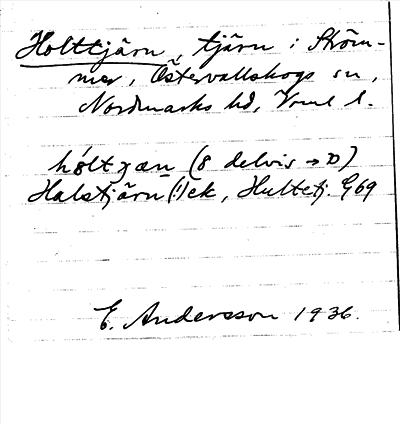 Holttjärn, tjärn i Ström-
mer, Östervallskogs sn,
Nordmarks hd, Vrml l.
høltχæn (8 delvis → ɔ)
Halstjärn (!) ek, Hultetj. G69
E. Andersson 1936.